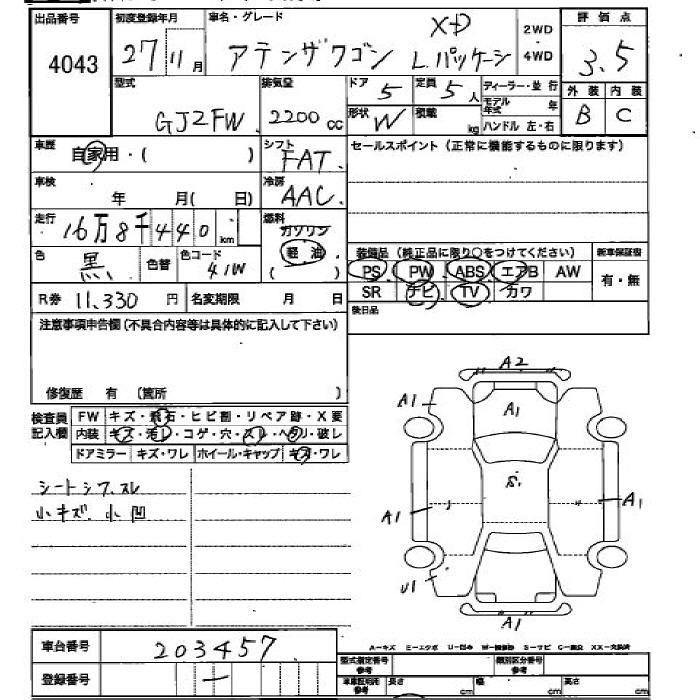 出品番号 初度登録年月 車名・グレード 評価点
4043 27 11月 アテンザワゴン XD Lパッケージ 2WD・4WD 3.5
型式 排気量 ドア 定員 ディーラー・並行 外装 内装
GJ2FW 2200cc 5 5人 モデル年式 年 B C
形状 W 積載 kg ハンドル 左・右
車歴 自家用・( ) シフト FAT セールスポイント(正常に機能するものに限ります)
車検 年 月( 日) 冷房 AAC
走行 16万8千440km 燃料 ガソリン
軽油
( )
色 黒 色替 色コード 41W
装備品(純正品に限り○をつけてください) 新車保証書
PS PW ABS エアB AW 有・無
SR ナビ TV カワ
R券 11,330円 名変期限 月 日 後日品
注意事項申告欄(不具合内容等は具体的に記入して下さい)
修復歴 有 〔箇所 〕
検査員記入欄 FW キズ・飛石・ヒビ割・リペア跡・X要
内装 キズ・汚レ・コゲ・穴・スレ・ヘタリ・破レ
ドアミラー キズ・ワレ ホイール・キャップ キズ・ワレ
シートシワ.スレ
小キズ.小凹
A2
A1 A1
S1
A1 A1
U1
A1
A-キズ E-エクボ U-凹み W-補修跡 S-サビ C-腐食 XX-交換済
車台番号 203457
登録番号 一
型式指定番号 類別区分番号
参考
車車証明用 長さ cm 幅 cm 高さ cm
参考